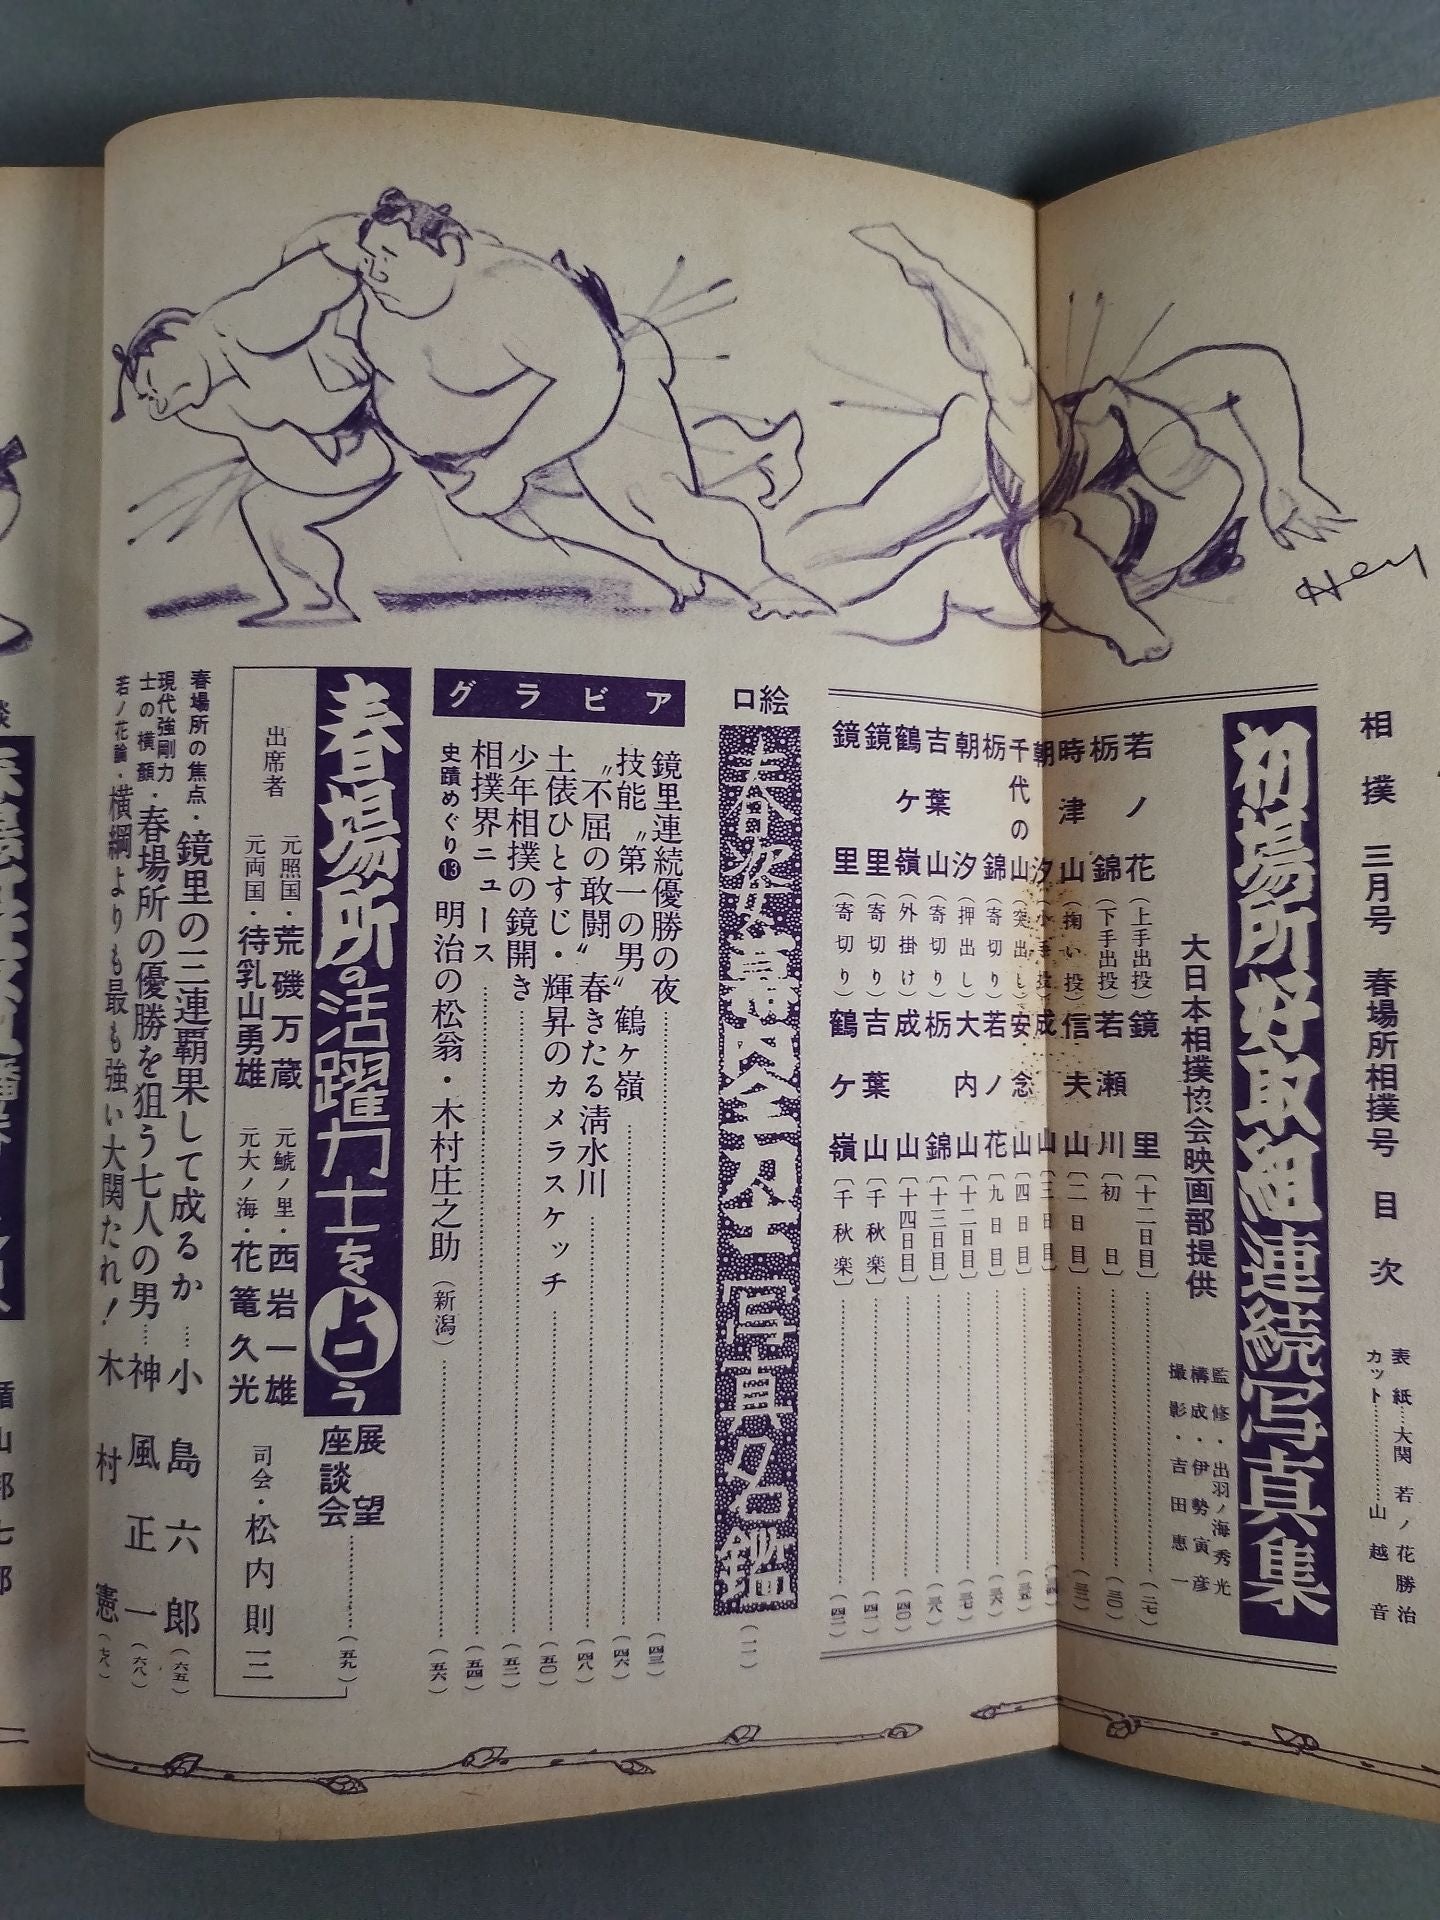 相撲 三月号 春場所相撲号 目次
表紙…大関 若ノ花勝治
カット…………山越音
初場所好取組連続写真集
大日本相撲協会映画部提供
監修・出羽ノ海秀光
構成・伊勢寅彦
撮影・吉田恵一
若ノ花(上手出投)鏡里〔十二日目〕……(二七)
栃錦(下手出投)若瀬川〔初日〕……(三〇)
時津山(掬い投)信夫山〔二日目〕……(三三)
朝汐(小手投)成山〔三日目〕
千代の山(突出し)安念山〔四日目〕……(三五)
栃錦(寄切り)若ノ花〔九日目〕……(三六)
朝汐(押出し)大内山〔十二日目〕……(三七)
吉葉山(寄切り)栃錦〔十三日目〕……(三八)
鶴ケ嶺(外掛け)成山〔十四日目〕……(四〇)
鏡里(寄切り)吉葉山〔千秋楽〕……(四一)
鏡里(寄切り)鶴ケ嶺〔千秋楽〕……(四二)
口絵
写真名鑑……(一一)
グラビア
鏡里連続優勝の夜……(四三)
技能〝第一の男〟鶴ケ嶺……(四六)
〝不屈の敢闘〟春きたる清水川……(四八)
土俵ひとすじ・輝昇のカメラスケッチ……(五〇)
少年相撲の鏡開き……(五二)
相撲界ニュース……(五四)
史蹟めぐり⓭ 明治の松翁・木村庄之助(新潟)……(五六)
春場所の活躍力士を占う 展望座談会……(五九)
出席者
元照国・荒磯万蔵
元両国・待乳山勇雄
元鯱ノ里・西岩一雄
元大ノ海・花篭久光
司会・松内則三
春場所の焦点・鏡里の三連覇果して成るか…小島六郎(六五)
現代強剛力士の横顔・春場所の優勝を狙う七人の男…神風正一(六八)
若ノ花論・横綱よりも最も強い大関たれ！木村憲(七八)
Hey